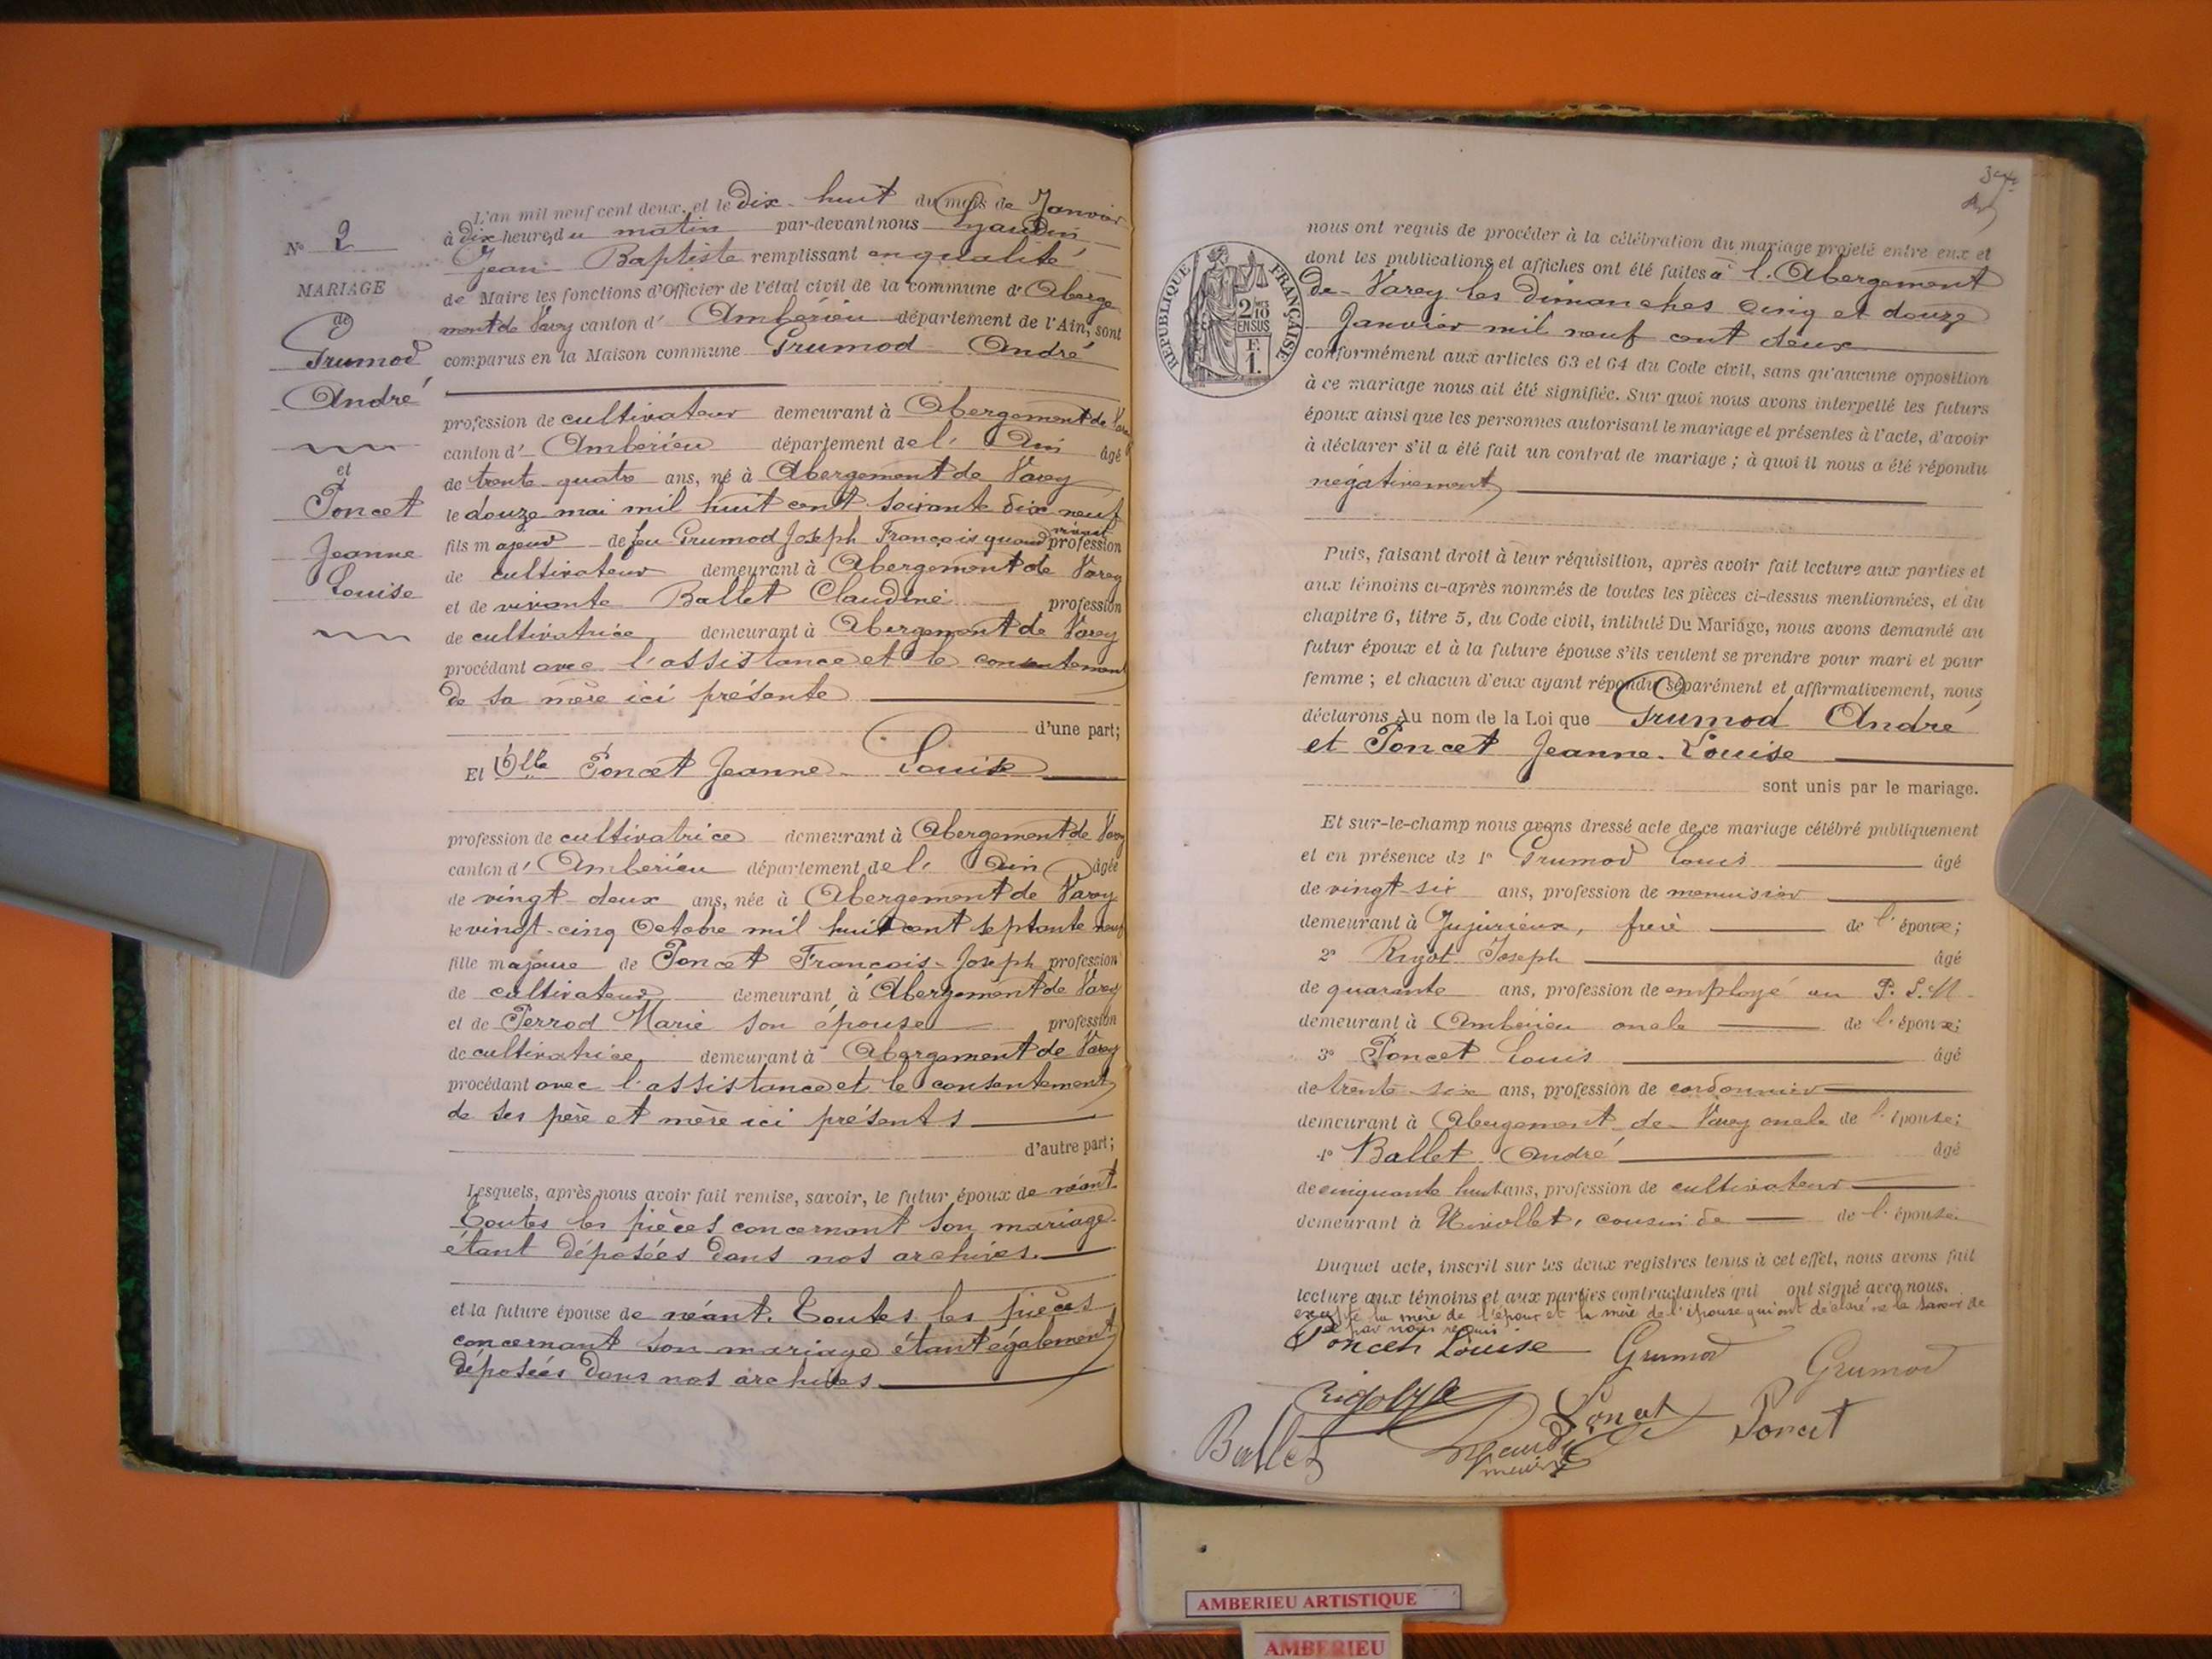 N° 2
MARIAGE
de
Grumod
André
et
Poncet
Jeanne
Louise
L'an mil neuf cent deux, et le Dix-huit du mois de Janvier
à dix heures du matin par-devant nous
Jean Baptiste remplissant en qualité
de Maire les fonctions d'Officier de l'état civil de la commune d'Aberge
ment de Varey canton d' Ambérieu département de l'Ain, sont
comparus en la Maison commune Grumod André
profession de cultivateur demeurant à Abergement de Varey
canton d' Amberieu département de l' Ain âgé
de trente-quatre ans, né à Abergement de Varey
le douze mai mil huit cent soixante dix neuf
fils majeur de feu Grumod Joseph François quand vivant profession
de cultivateur demeurant à Abergement de Varey
et de vivante Ballet Claudine profession
de cultivatrice demeurant à Abergement de Varey
procédant avec l'assistance et le consentement
de sa mère ici présente
d'une part;
Et Dlle Poncet Jeanne-Louise
profession de cultivatrice demeurant à Abergement de Varey
canton d' Amberieu département de l' Ain âgée
de vingt-deux ans, née à Abergement de Varey
le vingt-cinq Octobre mil huit cent septante neuf
fille majeure de Poncet François-Joseph profession
de cultivateur demeurant à Abergement de Varey
et de Perrod Marie son épouse profession
de cultivatrice demeurant à Abergement de Varey
procédant avec l'assistance et le consentement
de ses père et mère ici présents
d'autre part;
Lesquels, après nous avoir fait remise, savoir, le futur époux de néant
Toutes les pièces concernant son mariage
étant déposées dans nos archives.
et la future épouse de néant. Toutes les pièces
concernant son mariage étant également
déposées dans nos archives
RÉPUBLIQUE FRANÇAISE
2/10
EN SUS
F.
1.
nous ont requis de procéder à la célébration du mariage projeté entre eux et
dont les publications et affiches ont été faites à l'Abergement
de-Varey les Dimanches cinq et douze
Janvier mil neuf cent deux
conformément aux articles 63 et 64 du Code civil, sans qu'aucune opposition
à ce mariage nous ait été signifiée. Sur quoi nous avons interpellé les futurs
époux ainsi que les personnes autorisant le mariage et présentes à l'acte, d'avoir
à déclarer s'il a été fait un contrat de mariage ; à quoi il nous a été répondu
négativement
Puis, faisant droit à leur réquisition, après avoir fait lecture aux parties et
aux témoins ci-après nommés de toutes les pièces ci-dessus mentionnées, et du
chapitre 6, titre 5, du Code civil, intitulé Du Mariage, nous avons demandé au
futur époux et à la future épouse s'ils veulent se prendre pour mari et pour
femme ; et chacun d'eux ayant répondu séparément et affirmativement, nous
déclarons Au nom de la Loi que Grumod André
et Poncet Jeanne-Louise
sont unis par le mariage.
Et sur-le-champ nous avons dressé acte de ce mariage célébré publiquement
et en présence de 1° Grumod Louis âgé
de vingt-six ans, profession de menuisier
demeurant à Jujurieux, frère de l'époux;
2° Rigot Joseph âgé
de quarante ans, profession de employé au P. L. M.
demeurant à Ambérieu oncle de l'époux;
3° Poncet Louis âgé
de trente-six ans, profession de cordonnier
demeurant à Abergement-de-Varey oncle de l'épouse;
4° Ballet André âgé
de cinquante huit ans, profession de cultivateur
demeurant à Nivollet, cousin de de l'épouse.
Duquel acte, inscrit sur les deux registres tenus à cet effet, nous avons fait
lecture aux témoins et aux parties contractantes qui ont signé avec nous.
excepté la mère de l'époux et la mère de l'épouse qui ont déclaré ne le savoir de
ce par nous requis
Poncet Louise Grumod Grumod
Poncet Poncet
Ballet
AMBERIEU ARTISTIQUE
AMBERIEU